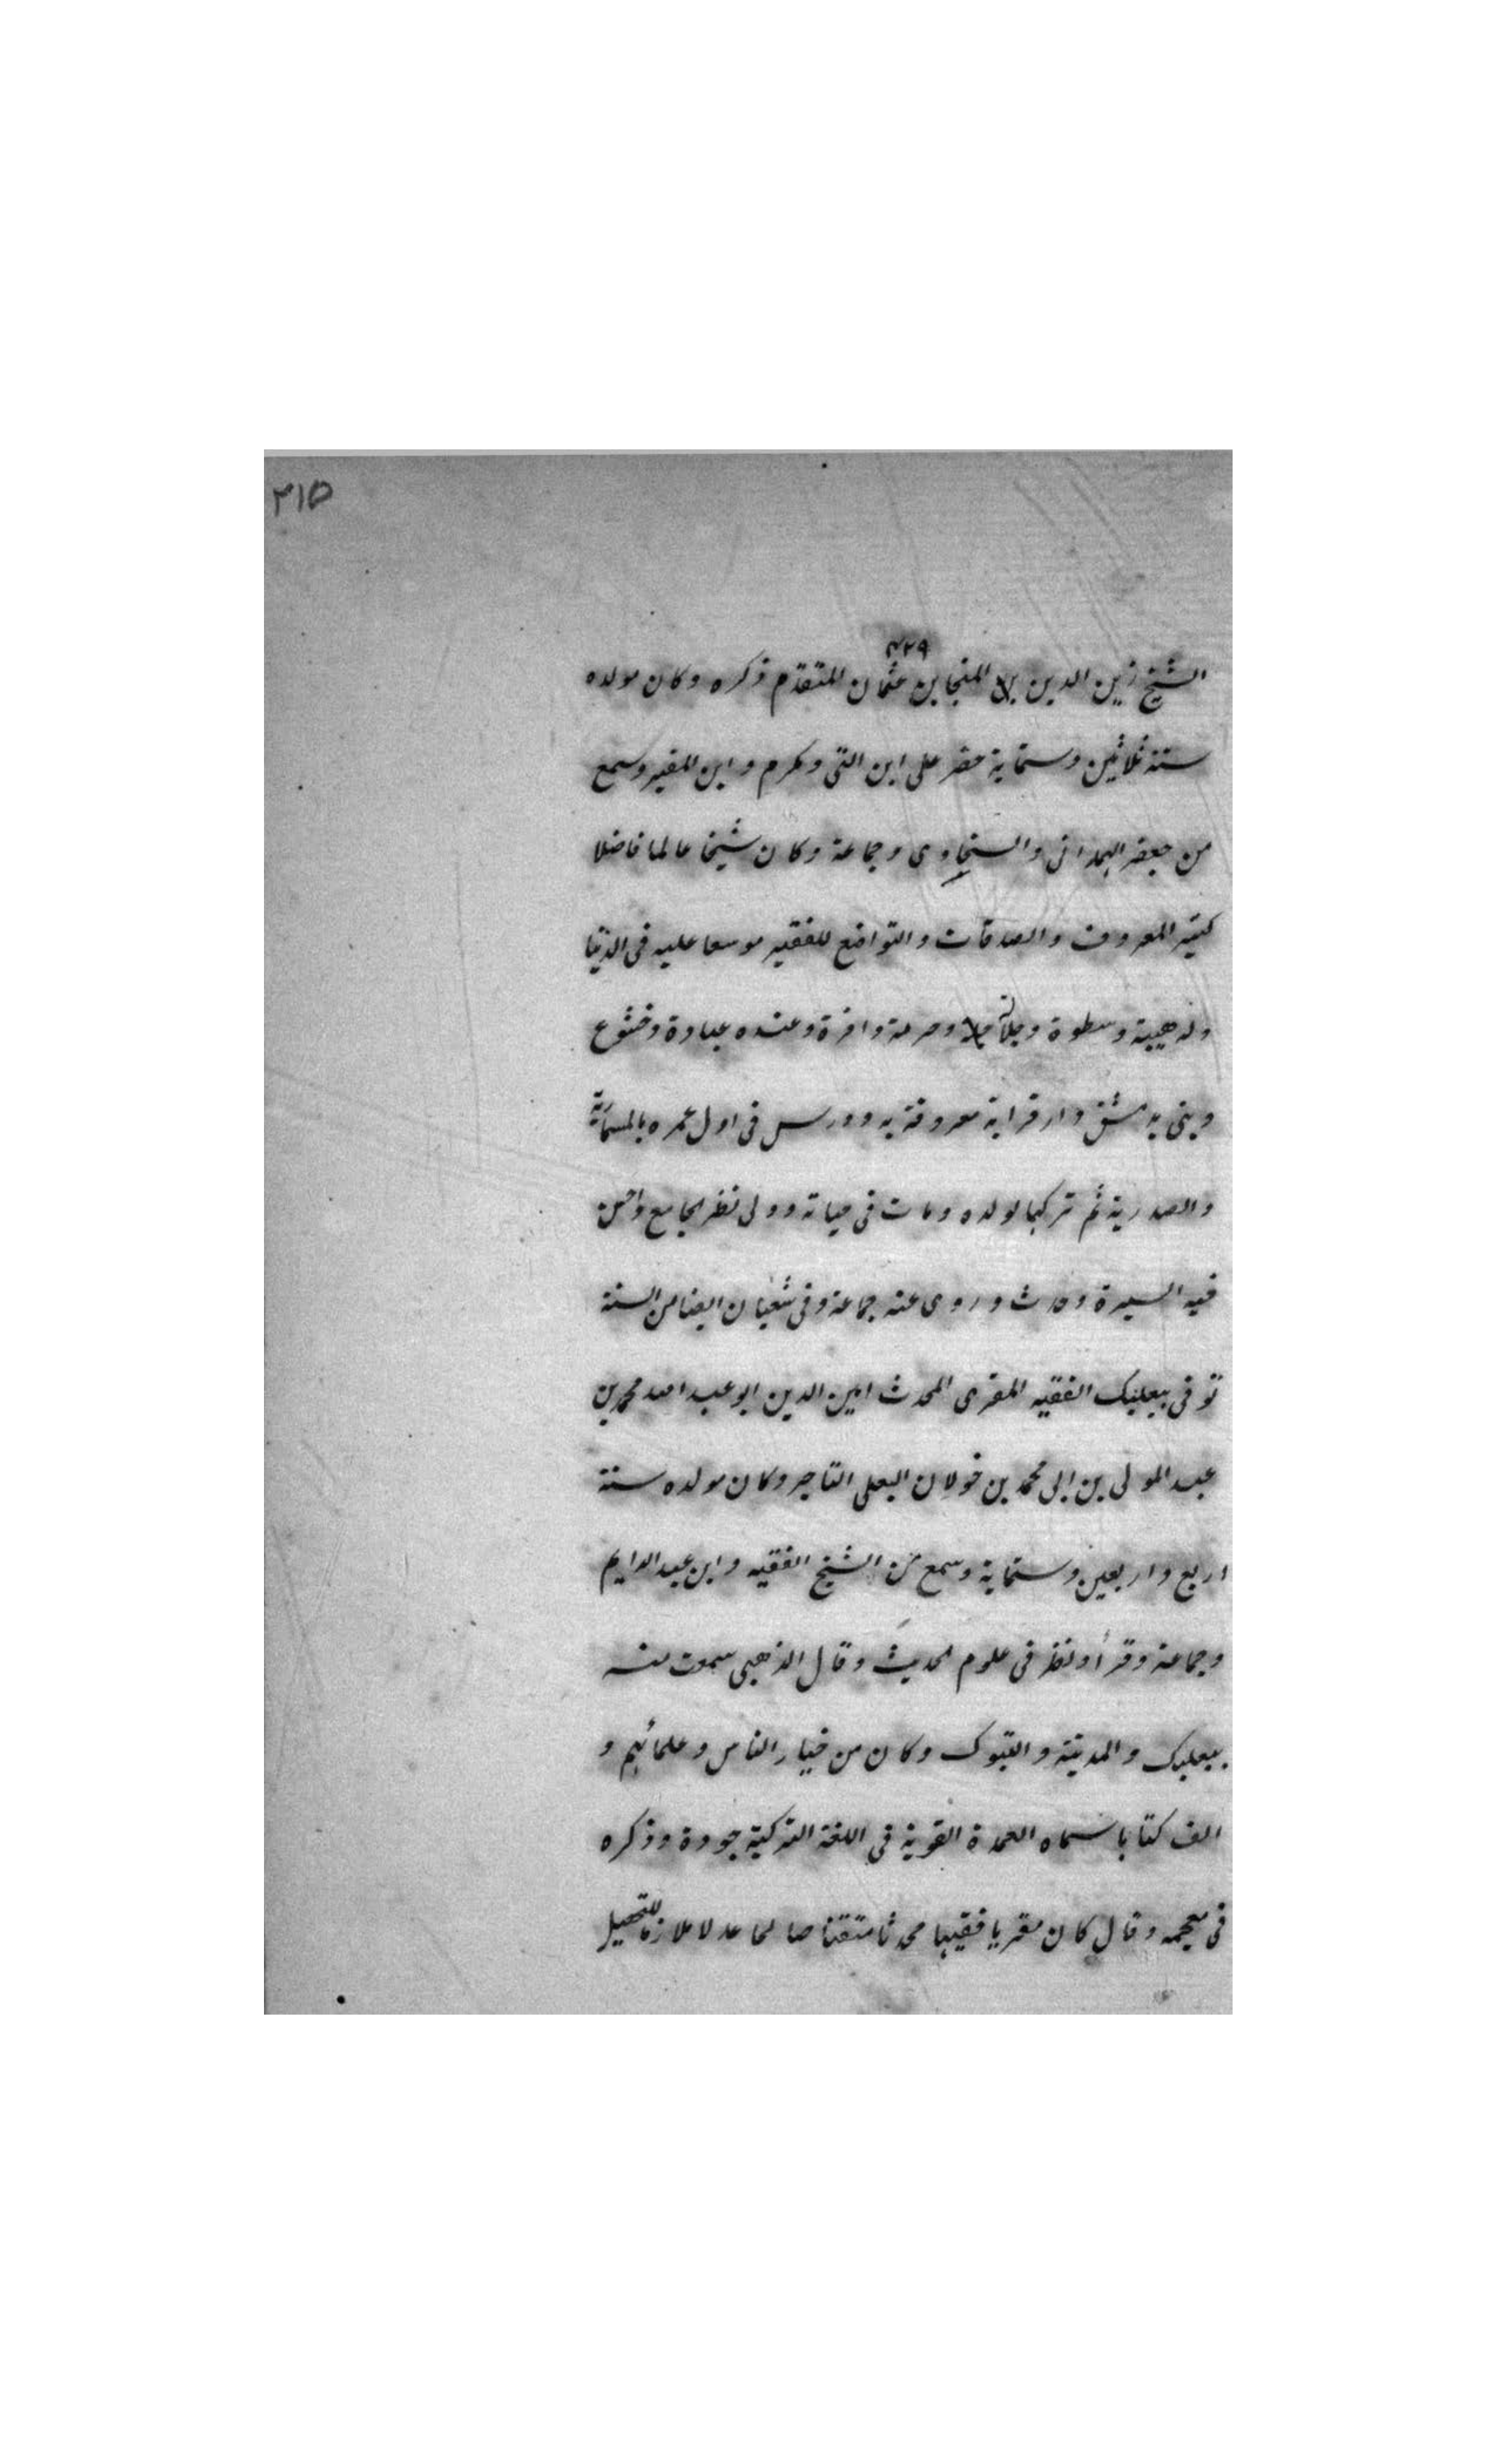 ٣١٥
٤٢٩
الشيخ زين الدين بن المنجا بن عثمان المتقدم ذكره وكان مولده
سنة ثلاثين وستماية حضر على ابن التى ومكرم وابن المقير وسمع
من جعفر الهمدانى والسخاوى وجماعة وكان شيخا عالما فاضلا
كثير المعروف والصدقات والتواضع للفقير موسعا عليه فى الدنيا
وله هيبة وسطوة وجلالة وحرمة وافرة وعنده عبادة وخشوع
وبنى بدمشق دار قراية معروفة به ودرس فى اول عمره بالمسمارية
والصدرية ثم تركهما لولده ومات فى حياته وولى نظر الجامع واحسن
فيه السيرة وحدث وروى عنه جماعة وفى شعبان ايضا من السنة
توفى ببعلبك الفقيه المقرى المحدث امين الدين ابو عبد الله محمد بن
عبد المولى بن ابى محمد بن خولان البعلى التاجر وكان مولده سنة
اربع واربعين وستماية وسمع من الشيخ الفقيه وابن عبد الدايم
وجماعة وقرأ ونظر فى علوم الحديث وقال الذهبى سمعت منه
ببعلبك والمدينة والتبوك وكان من خيار الناس وعلمائهم و
الف كتابا سماه العمدة القوية فى اللغة التركية جوده وذكره
فى معجمه وقال كان مقريا فقيها محدثا متقنا صالحا عدلا ملازما للتحصيل